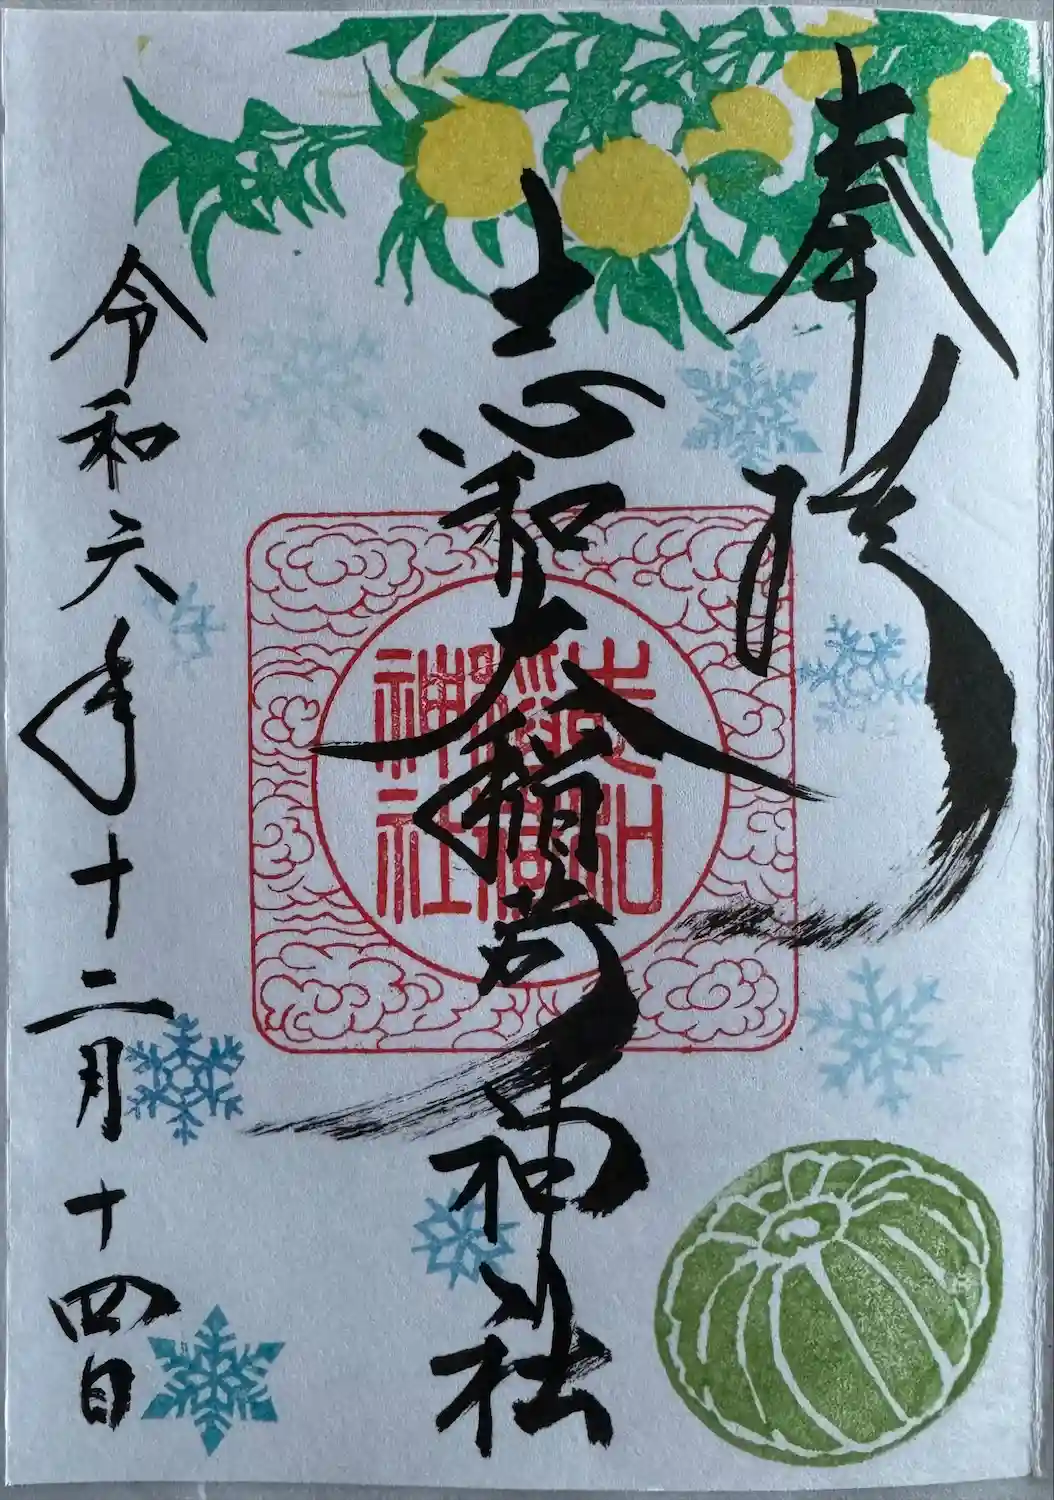 奉拝
志和大稲荷神社
志和
稲荷
神社
令和六年十二月十四日